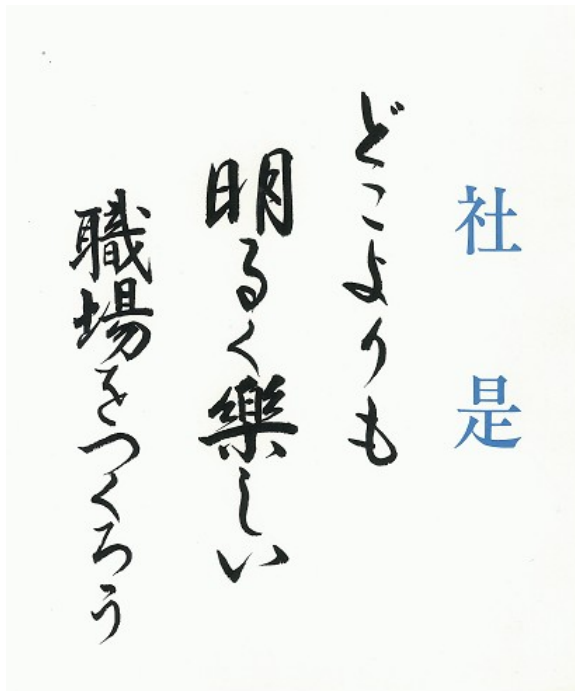 社是
どこよりも
明るく樂しい
職場をつくろう